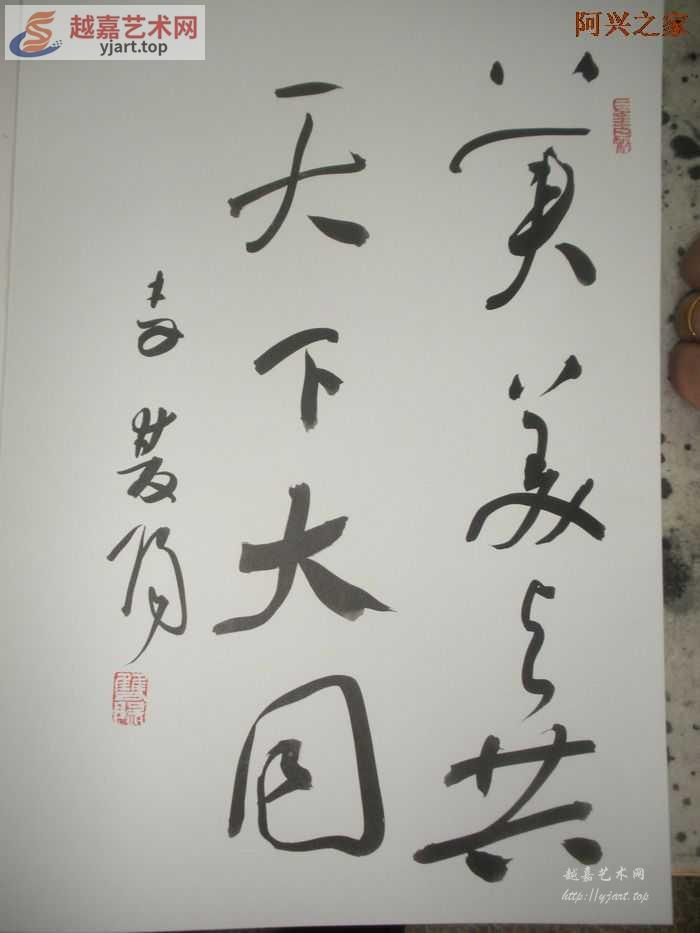 越嘉艺术网
yjart.top
阿兴之家
美美与共
天下大同
越嘉艺术网
http://yjart.top